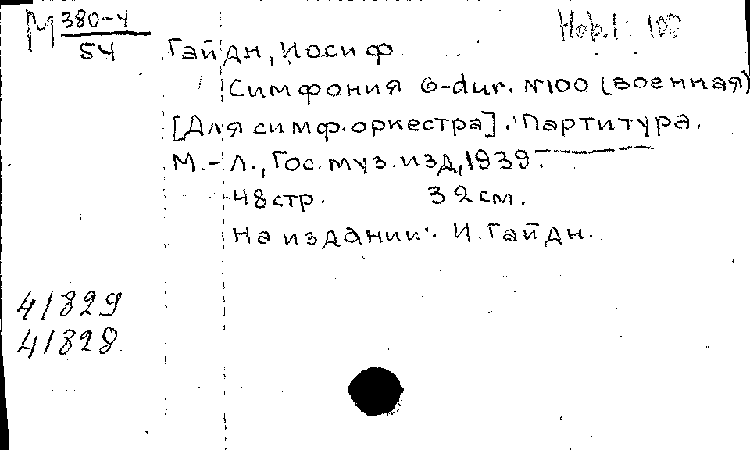 М 380-4 / 54
Гайдн, Иосиф
Симфония G-dur. №100 (военная)
[Для симф. оркестра]. Партитура.
М.-Л., Гос. муз. изд, 1939.
48 стр. 32 см.
На издании: И. Гайдн.
41829
41828